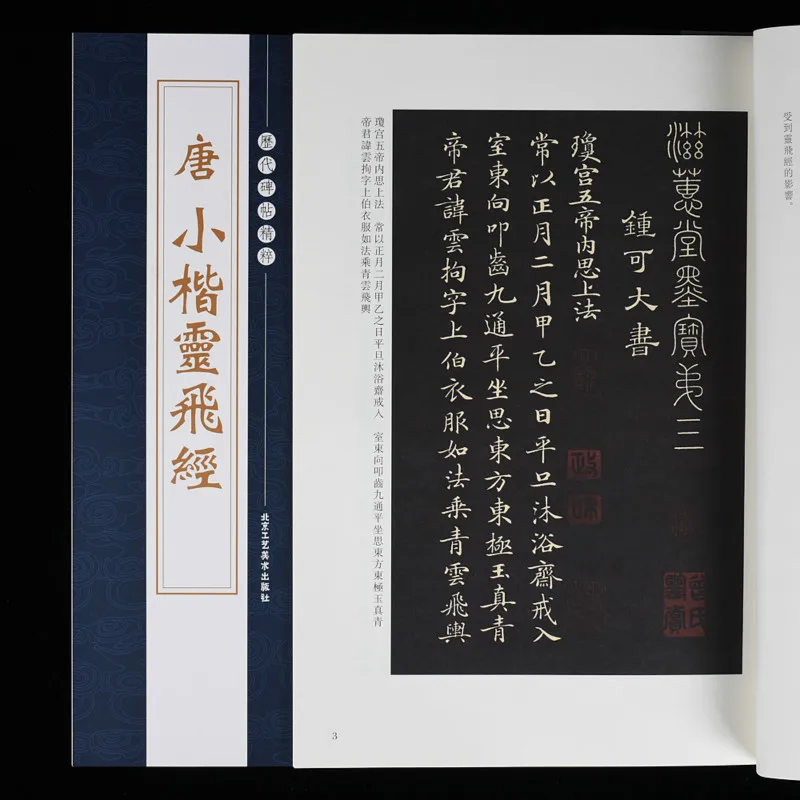 唐 小楷靈飛經
歷代碑帖精粹
北京工艺美术出版社
受到靈飛經的影響。
滋蕙堂墨寶弟三
鍾可大書
瓊宫五帝内思上法
常以正月二月甲乙之日平旦沐浴齋戒入
室東向叩齒九通平坐思東方東極玉真青
帝君諱雲拘字上伯衣服如法乘青雲飛輿
瓊宫五帝内思上法 常以正月二月甲乙之日平旦沐浴齋戒入 室東向叩齒九通平坐思東方東極玉真青
帝君諱雲拘字上伯衣服如法乘青雲飛輿
3